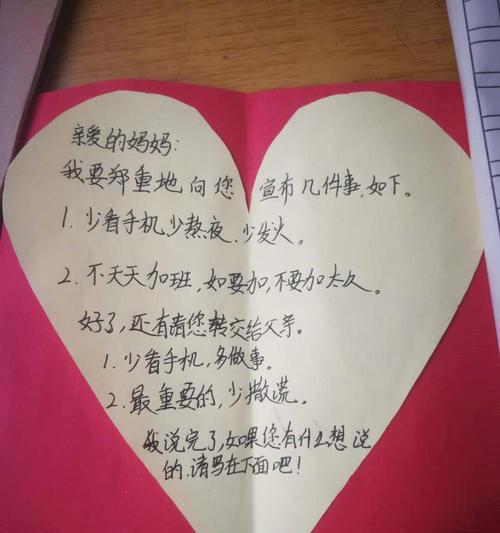 亲爱的妈妈:
我要郑重地向您宣布几件事,如下。
1.少看手机,少熬夜,少发火。
2.不天天加班,如要加,不要加太久。
好了,还有请您转交给父亲。
1.少看手机,多做事。
2.最重要的,少撒谎。
我说完了,如果您有什么想说
的.请写在下面吧!